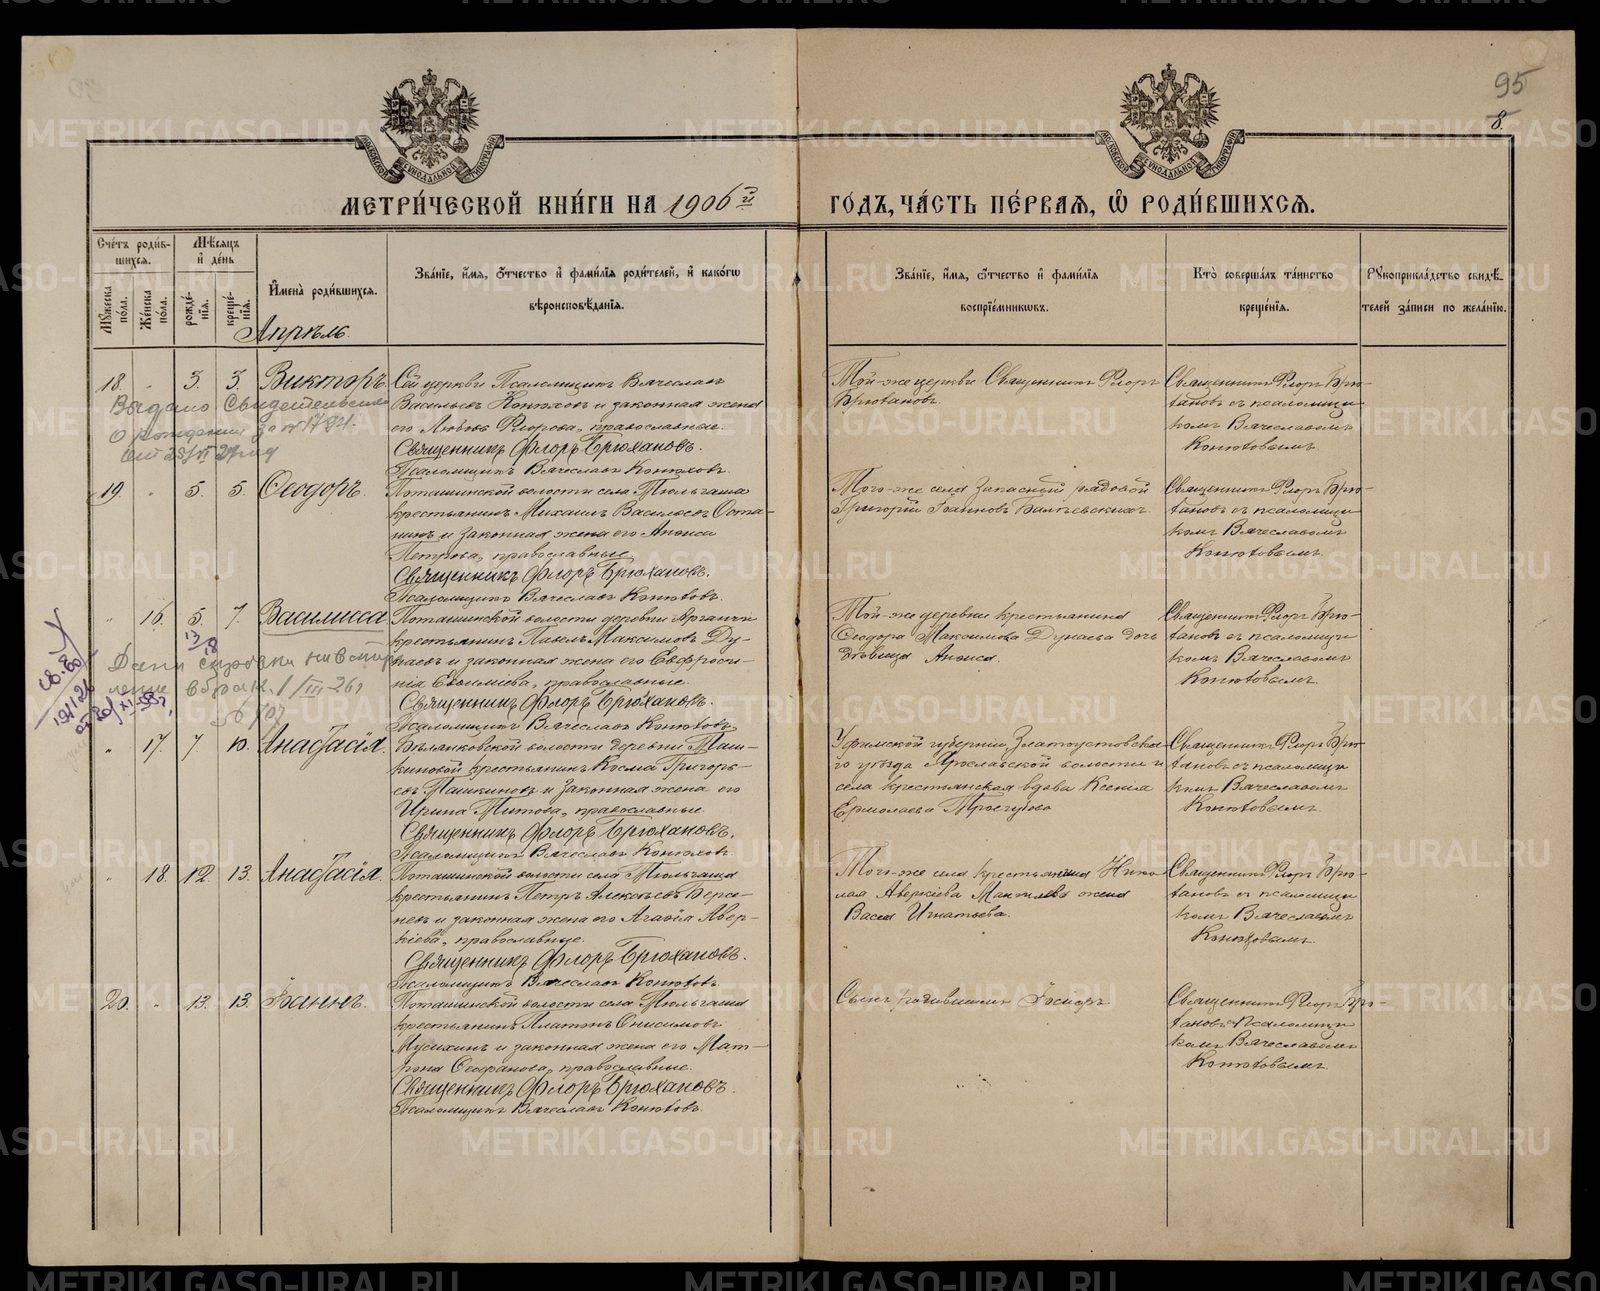 95
8.
МЕТРИ́ЧЕСКОЙ КНИ́ГИ НА 1906й
ГОДЪ, ЧА́СТЬ ПЕ́РВАЯ, Ѡ РОДИ́ВШИХСЯ.
Сче́тъ роди́в-
шихся.
Му́жеска по́ла.
Же́нска по́ла.
Мѣсяцъ и день
рожде́нія.
креще́нія.
Имена̀ роди́вшихся.
Зва́ніе, и́мя, о́тчество и фами́лія роди́телей, и како́гѡ
вѣроисповѣ́данія.
Зва́ніе, и́мя, о́тчество и фами́лія
воспріе́мникѡвъ.
Кто̀ соверша́лъ та́инство
креще́нія.
Рукоприкла́дство свидѣ́-
телей за́писи по жела́нію.
Апрѣль.
18. " 3. 3. Викторъ
Сей церкви Псаломщикъ Вячеславъ
Васильевъ Конюховъ и законная жена
его Любовь Флорова, православные.
Священникъ Флоръ Брюхановъ.
Псаломщикъ Вячеславъ Конюховъ.
Той-же церкви Священникъ Флоръ
Брюхановъ.
Священникъ Флоръ Брю-
хановъ съ псаломщи-
комъ Вячеславомъ
Конюховымъ.
Выдано Свидетельство
о рождении за №
19. " 5. 5. Ѳеодоръ.
Поташинской волости села Тюльгаша
крестьянинъ Михаилъ Васильевъ Оста-
нинъ и законная жена его Анисія
Петрова, православные.
Священникъ Флоръ Брюхановъ.
Псаломщикъ Вячеславъ Конюховъ.
Того-же села Запасный рядовой
Григорій Іоанновъ
Священникъ Флоръ Брю-
хановъ съ псаломщи-
комъ Вячеславомъ
Конюховымъ.
" 16. 5. 7. Василисса
Поташинской волости деревни
крестьянинъ Павелъ Максимовъ Ду-
наевъ и законная жена его Евфроси-
нія Евѳиміева, православные.
Священникъ Флоръ Брюхановъ.
Псаломщикъ Вячеславъ Конюховъ.
Той-же деревни крестьянина
Ѳеодора Максимова Дунаева дочь
дѣвица Аниса.
Священникъ Флоръ Брю-
хановъ съ псаломщи-
комъ Вячеславомъ
Конюховымъ.
13
18
" 17. 7. 10. Анастасія.
Бѣлянковской волости деревни Паш-
киновой крестьянинъ Косма Григорь-
евъ Пашкиновъ и законная жена его
Ирина Титова, православные
Священникъ Флоръ Брюхановъ.
Псаломщикъ Вячеславъ Конюховъ.
Уфимской губерніи, Златоустовска-
го уѣзда Ярославской волости и
села крестьянская вдова Ксенія
Ермолаева
Священникъ Флоръ Брю-
хановъ съ псаломщи-
комъ Вячеславомъ
Конюховымъ.
" 18. 12. 13. Анастасія.
Поташинской волости села Тюльгаша
крестьянинъ Петръ Алексѣевъ Берсе-
невъ и законная жена его Агафія Авер-
кіева, православные.
Священникъ Флоръ Брюхановъ.
Псаломщикъ Вячеславъ Конюховъ.
Того-же села крестьянина Нико-
лая Аверкіева жена
Васса Игнатьева.
Священникъ Флоръ Брю-
хановъ съ псаломщи-
комъ Вячеславомъ
Конюховымъ.
20. " 13. 13. Іоаннъ.
Поташинской волости села Тюльгаша
крестьянинъ Платонъ Онисимовъ
Мусихинъ и законная жена его Мат-
рона Ѳеофанова, православные.
Священникъ Флоръ Брюхановъ.
Псаломщикъ Вячеславъ Конюховъ.
Сынъ родившихъ
Священникъ Флоръ Брю-
хановъ съ псаломщи-
комъ Вячеславомъ
Конюховымъ.
METRIKI.GASO-URAL.RU